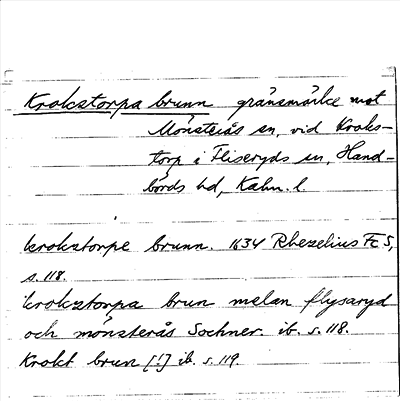 Krokstorpa brunn gränsmärke mot
Mönsterås sn, vid Kroks-
torp i Fliseryds sn, Hand-
börds hd, Kalm. l.
krokstorpe brunn. 1634 Rhezelius Fc 5,
s. 118.
krokztorpa brun melan flysaryd
och mönsterås Sochner. ib. s. 118.
Krokt brun [!] ib. s. 119.